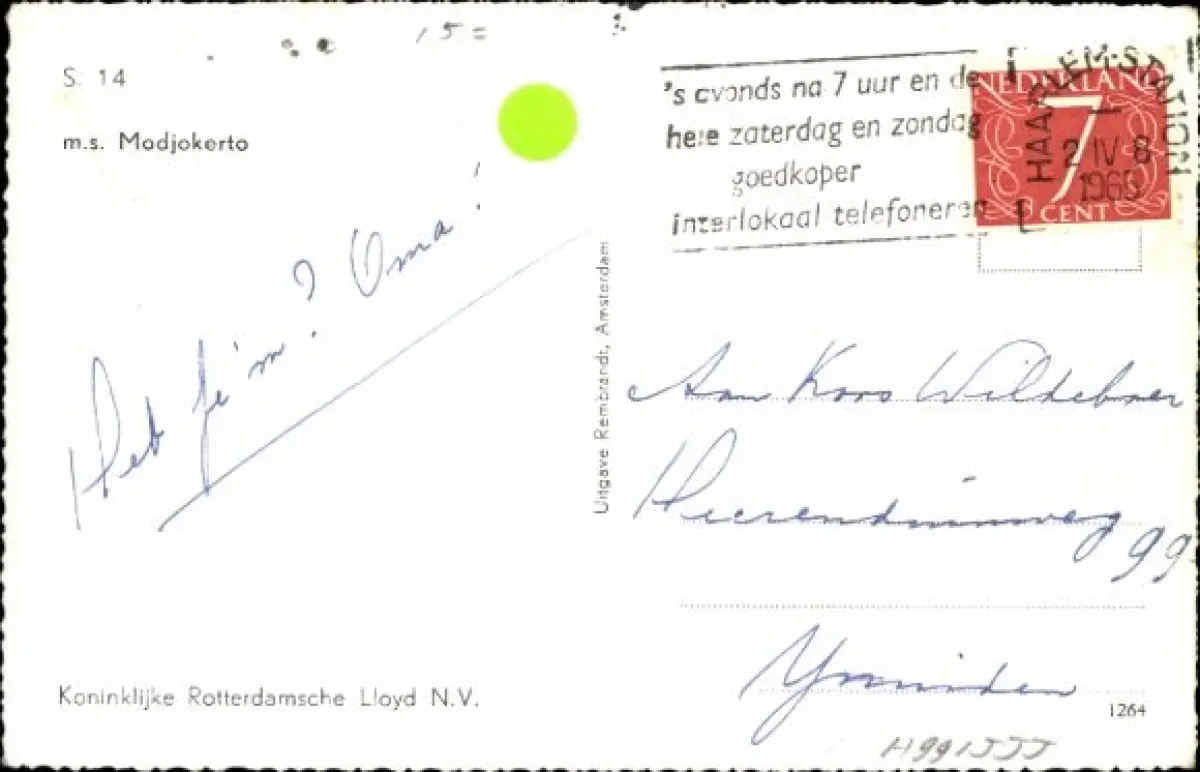 15=
S. 14
m.s. Modjokerto
Heb je 'm? Oma!
Koninklijke Rotterdamsche Lloyd N.V.
Uitgave Rembrandt, Amsterdam
's avonds na 7 uur en de
hele zaterdag en zondag
goedkoper
interlokaal telefoneren
NEDERLAND
7
CENT
HAARLEM-STATION
2 IV 8
1965
Aan Koos Wildeboer
Heerenduinweg
99
Ymuiden
1264